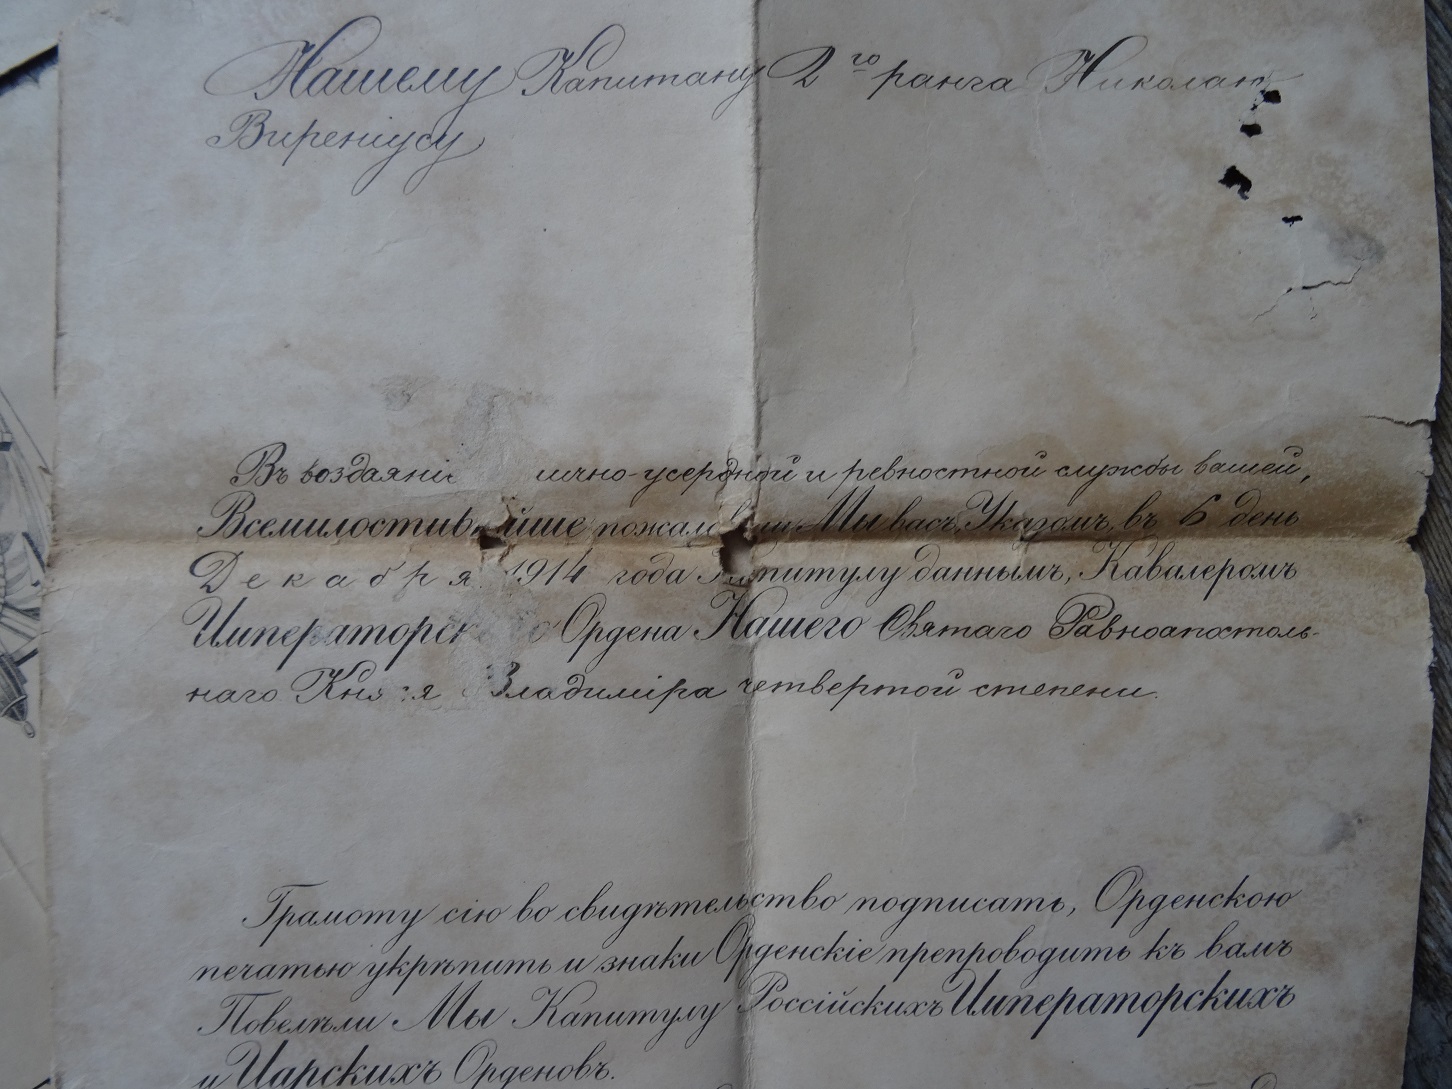 Нашему Капитану 2го ранга Николаю
Виреніусу
Въ воздаяні ично-усердной и ревностной службы вашей,
Всемилостивѣйше пожаловали Мы васъ, Указомъ, въ 6 день
Декабря 1914 года Капитулу даннымъ, Кавалеромъ
Императорского Ордена Нашего Святаго Равноапостоль-
наго Князя Владиміра четвертой степени.
Грамоту сію во свидѣтельство подписать, Орденскою
печатью укрѣпить и знаки Орденскіе препроводить къ вамъ
Повелѣли Мы Капитулу Россійскихъ Императорскихъ
и Царскихъ Орденовъ.